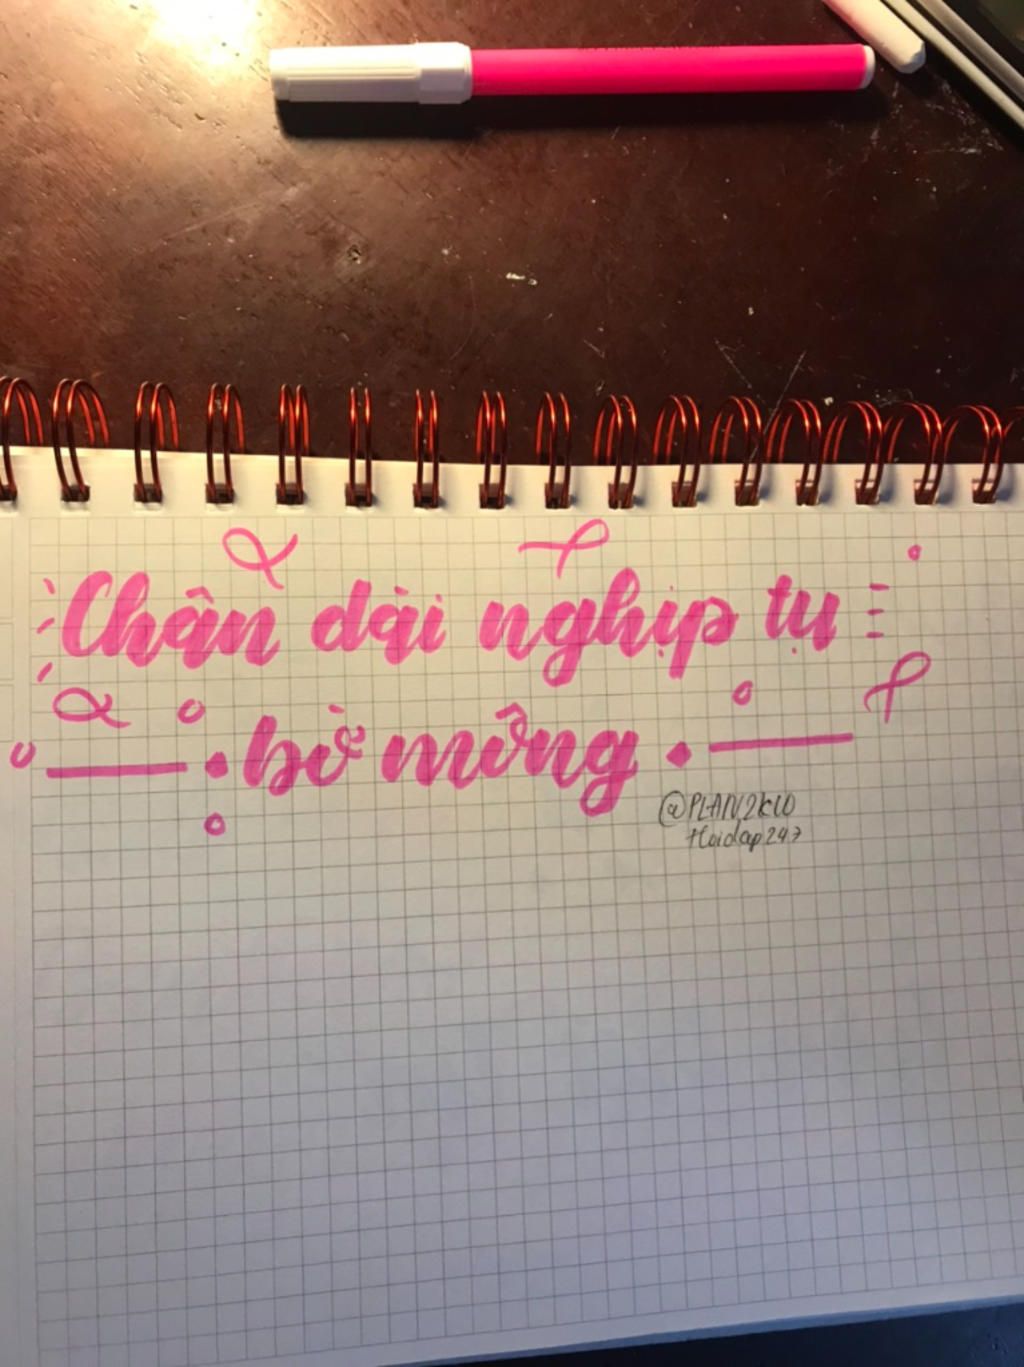 Chận dài nghịp tụ
bờ mững
@PLAN2KLO
Hoidap247